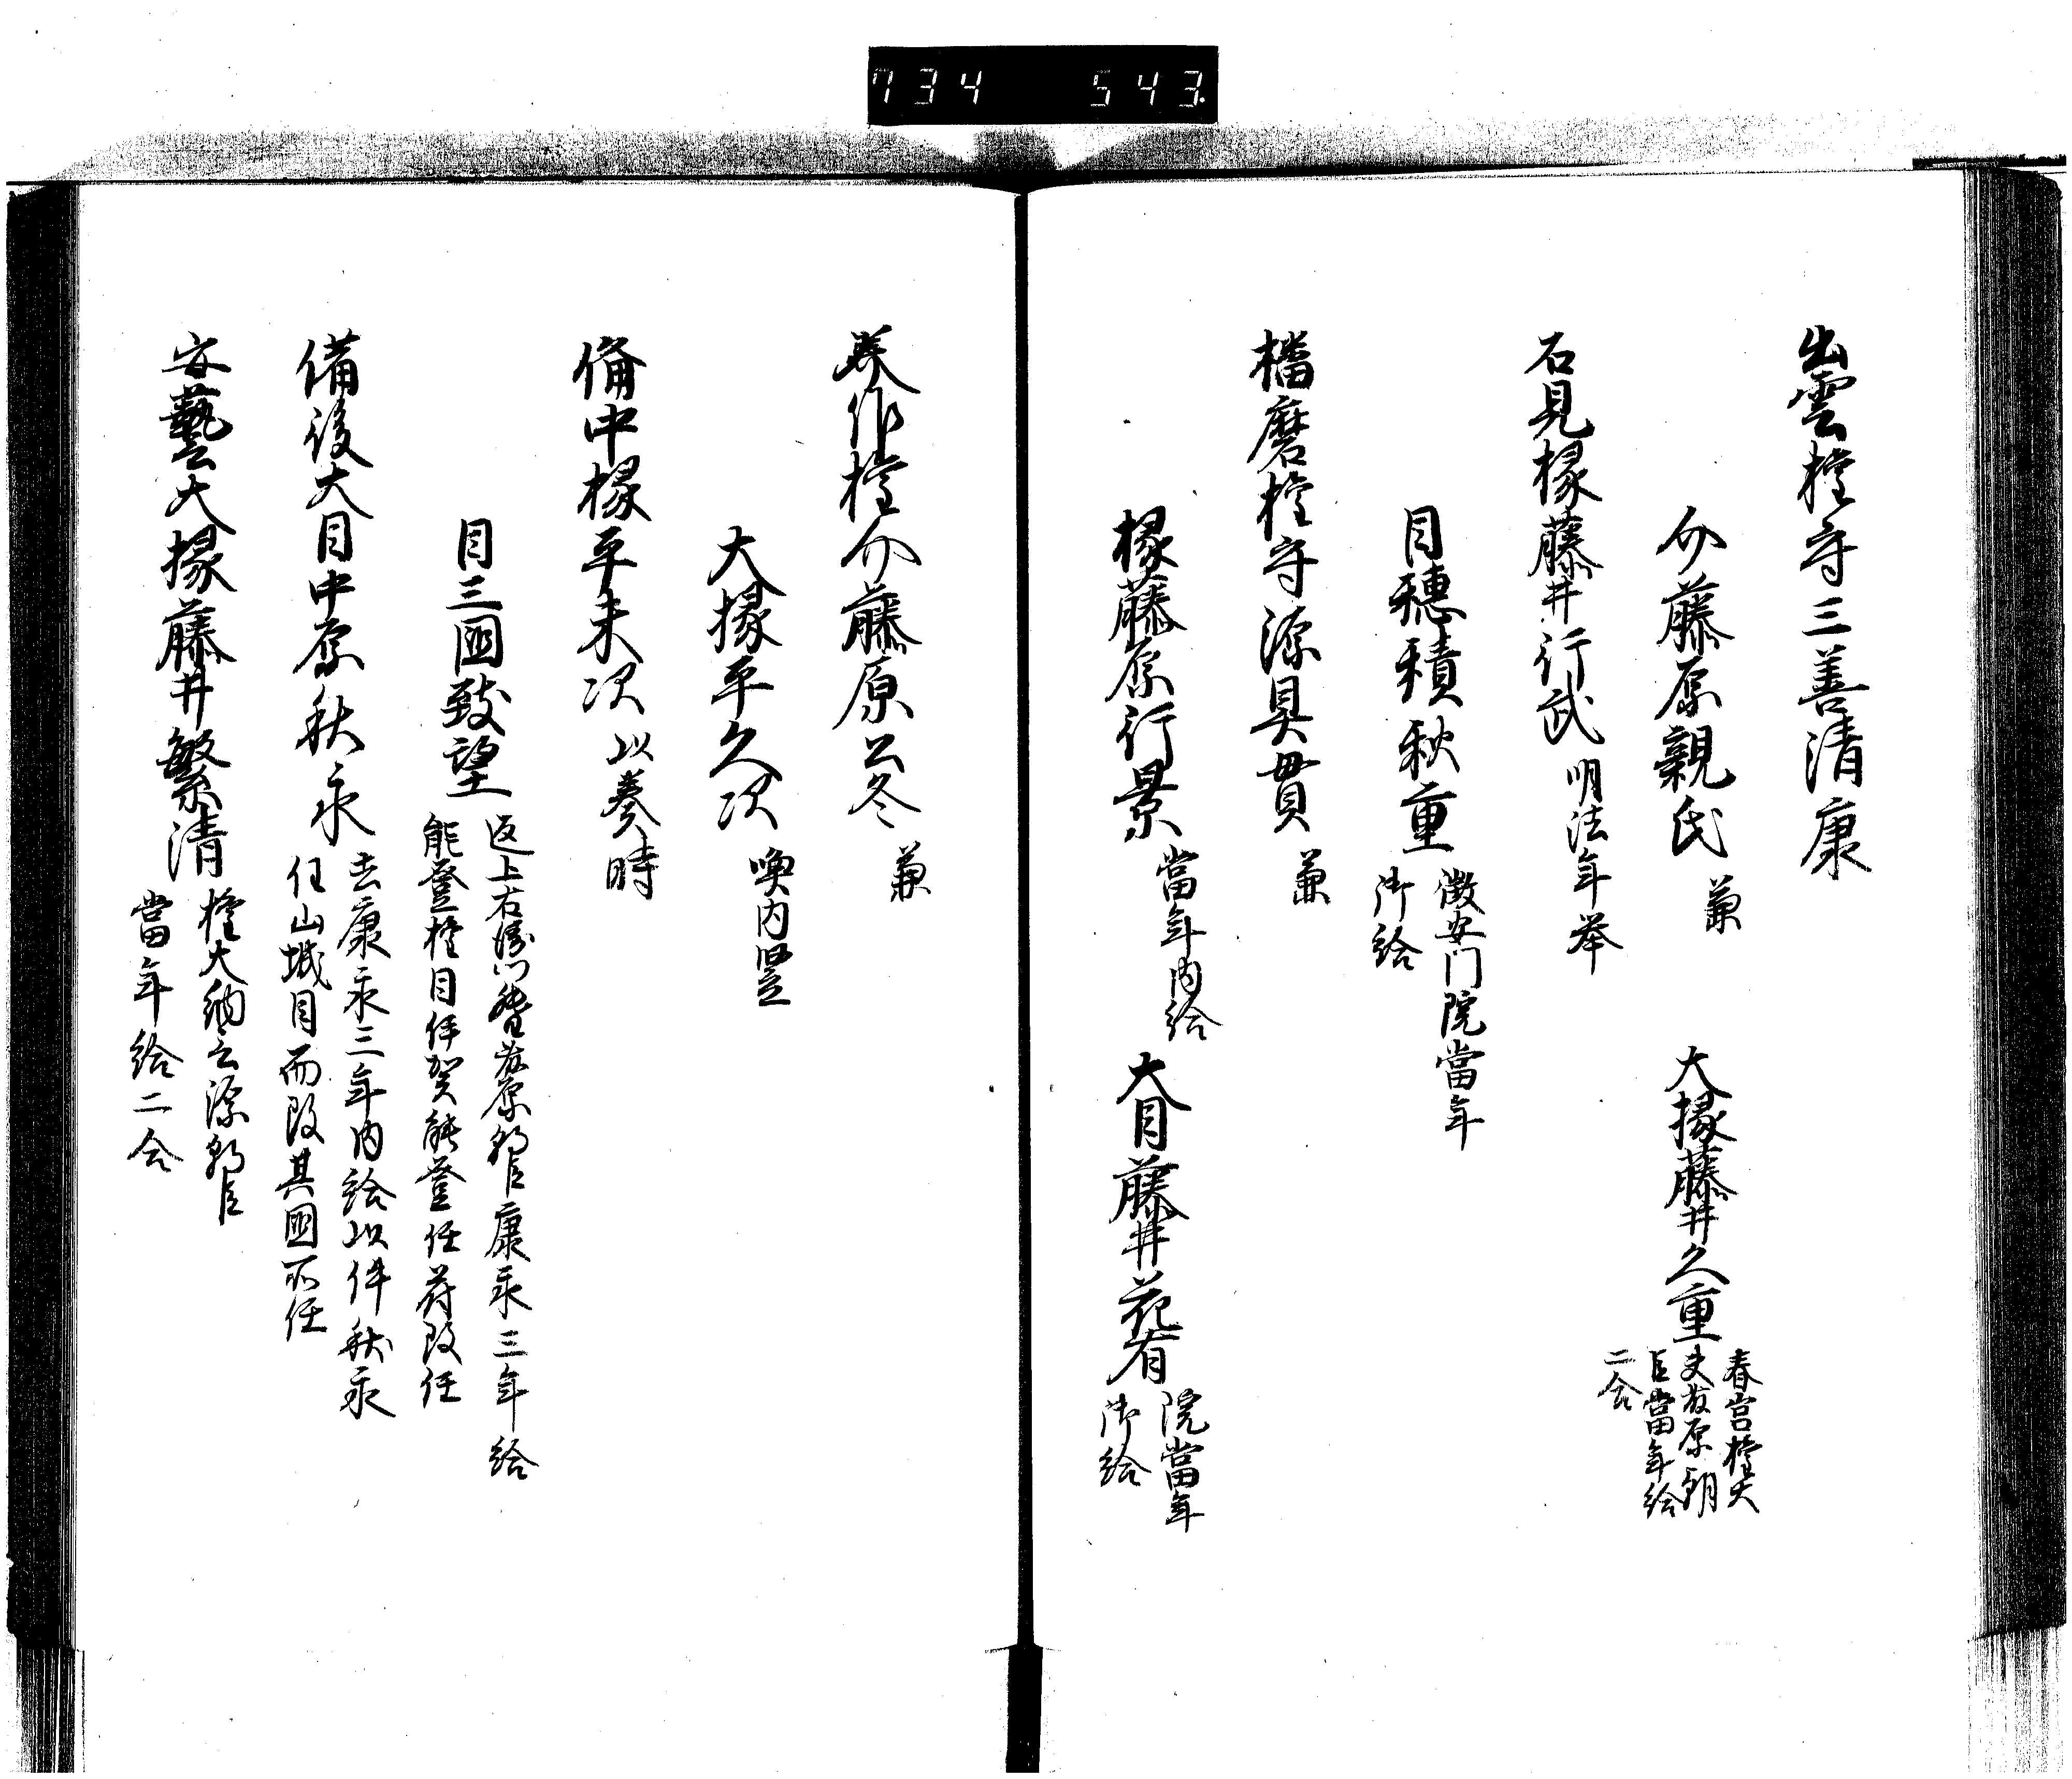 734 543
出雲権守三善清康
介藤原親氏 兼
大掾藤井久重 春宮権大
夫藤原朝
臣當年給
二合
石見掾藤井行武 明法年挙
目穂積秋重 徽安門院當年
御給
播磨権守源具貫 兼
掾藤原行景 當年内給
大目藤井花有 院當年
御給
美作権介藤原公冬 兼
大掾平久次 喚内竪
備中掾平末次 以奏時
目三國致望 返上右衛門督藤原朝臣康永三年給
能登権目伴賀能登任符改任
備後大目中原秋永 去康永三年内給以件秋永
任山城目而改其國所任
安藝大掾藤井繁清 権大納言源朝臣
當年給二合